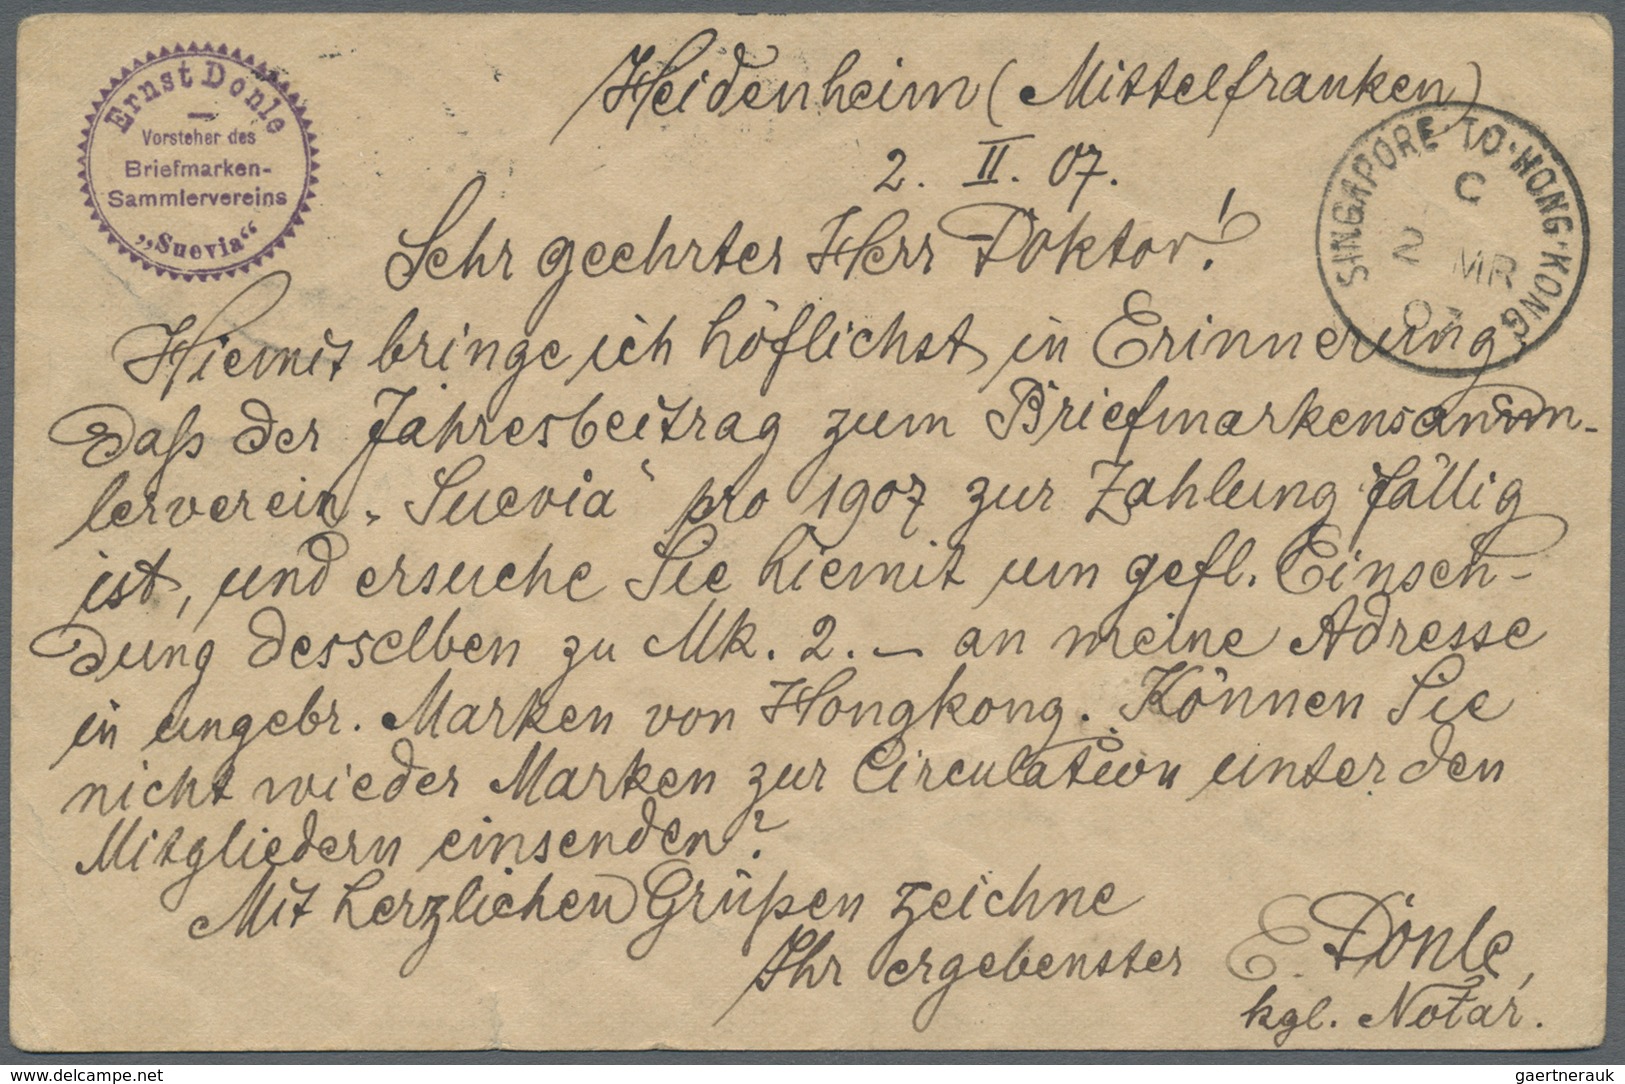 Ernst Donle
Vorsteher des
Briefmarken-
Sammlervereins
„Suevia“
Heidenheim (Mittelfranken)
2. II. 07.
SINGAPORE TO HONG·KONG
C
2 MR
07
Sehr geehrter Herr Doktor!
Hiemit bringe ich höflichst in Erinnerung,
daß der Jahresbeitrag zum Briefmarkensamm-
lerverein „Suevia“ pro 1907 zur Zahlung fällig
ist, und ersuche Sie hiemit um gefl. Einsen-
dung desselben zu Mk. 2. — an meine Adresse
in ungebr. Marken von Hongkong. Können Sie
nicht wieder Marken zur Circulation unter den
Mitgliedern einsenden?
Mit herzlichen Grüßen zeichne
Ihr ergebenster E. Donle,
kgl. Notar.
www.delcampe.net
gaertnerauk